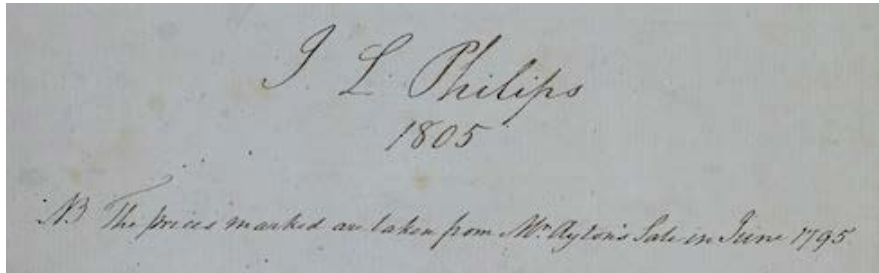 J. L. Philips
1805
NB The prices marked are taken from Mr. Ayton's Sale in June 1795